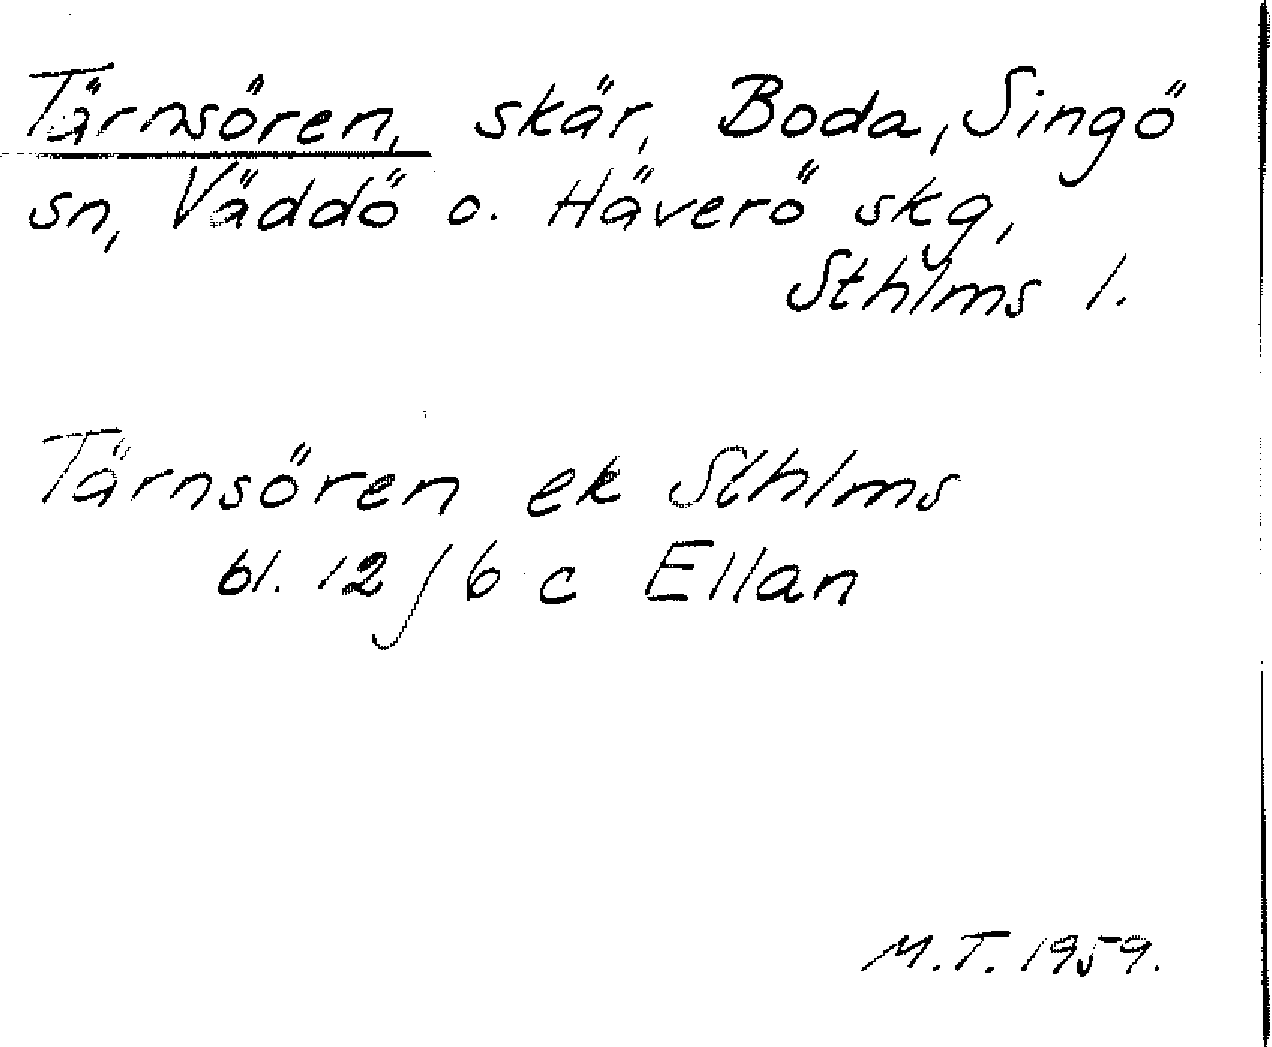 Tärnsören, skär, Boda, Singö
sn, Väddö o. Häverö skg,
Sthlms l.
Tärnsören ek Sthlms
bl. 12 / 6 c Ellan
M.T. 1959.